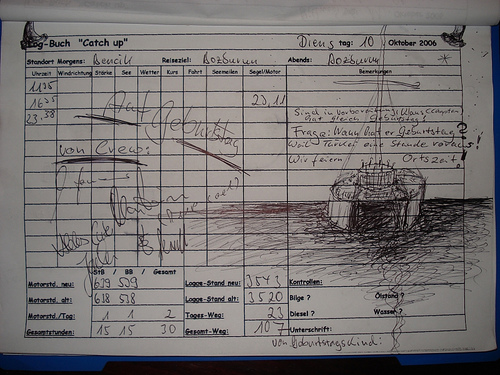 Log-Buch "Catch up"
Diens tag: 10 Oktober 2006
Standort Morgens: Bencik Reiseziel: Bozburun Abends: Bozburun *
Uhrzeit Windrichtung Stärke See Wetter Kurs Fahrt Seemeilen Segel/Motor Bemerkungen
1135
1625 23,11
23.38
Auf Geburtstag
Sind in Vorbereitung: Klaus
hat gleich Geburtstag!
Frage: Wann hat er Geburtstag?
Weil Türkei eine Stunde voraus!
Wir feiern Ortszeit!
von Crew:
Alles Gute
StB / BB / Gesamt
Motorstd. neu: 639 529 Logge-Stand neu: 3543 Kontrollen:
Motorstd. alt: 638 528 Logge-Stand alt: 3520 Bilge ? Ölstand ?
Motorstd./Tag: 1 1 2 Tages-Weg: 23 Diesel ? Wasser ?
Gesamtstunden: 15 15 30 Gesamt-Weg: 107 Unterschrift:
von Geburtstagskind: